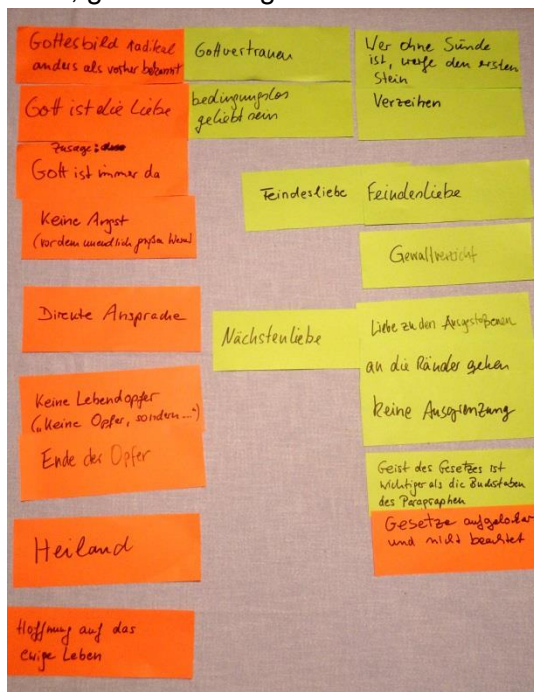 Gottesbild radikal
anders als vorher bekannt
Gott ist die Liebe
Zusage:
Gott ist immer da
Keine Angst
(vor dem unendlich großen Wesen)
Direkte Ansprache
Keine Lebendopfer
("Keine Opfer, sondern...")
Ende der Opfer
Heiland
Hoffnung auf das
ewige Leben
Gottvertrauen
bedingungslos
geliebt sein
Feindesliebe
Nächstenliebe
Wer ohne Sünde
ist, werfe den ersten
Stein
Verzeihen
Feindesliebe
Gewaltverzicht
Liebe zu den Ausgestoßenen
an die Ränder gehen
keine Ausgrenzung
Geist des Gesetzes ist
wichtiger als die Buchstaben
des Paragraphen
Gesetze aufgelockert
und nicht beachtet